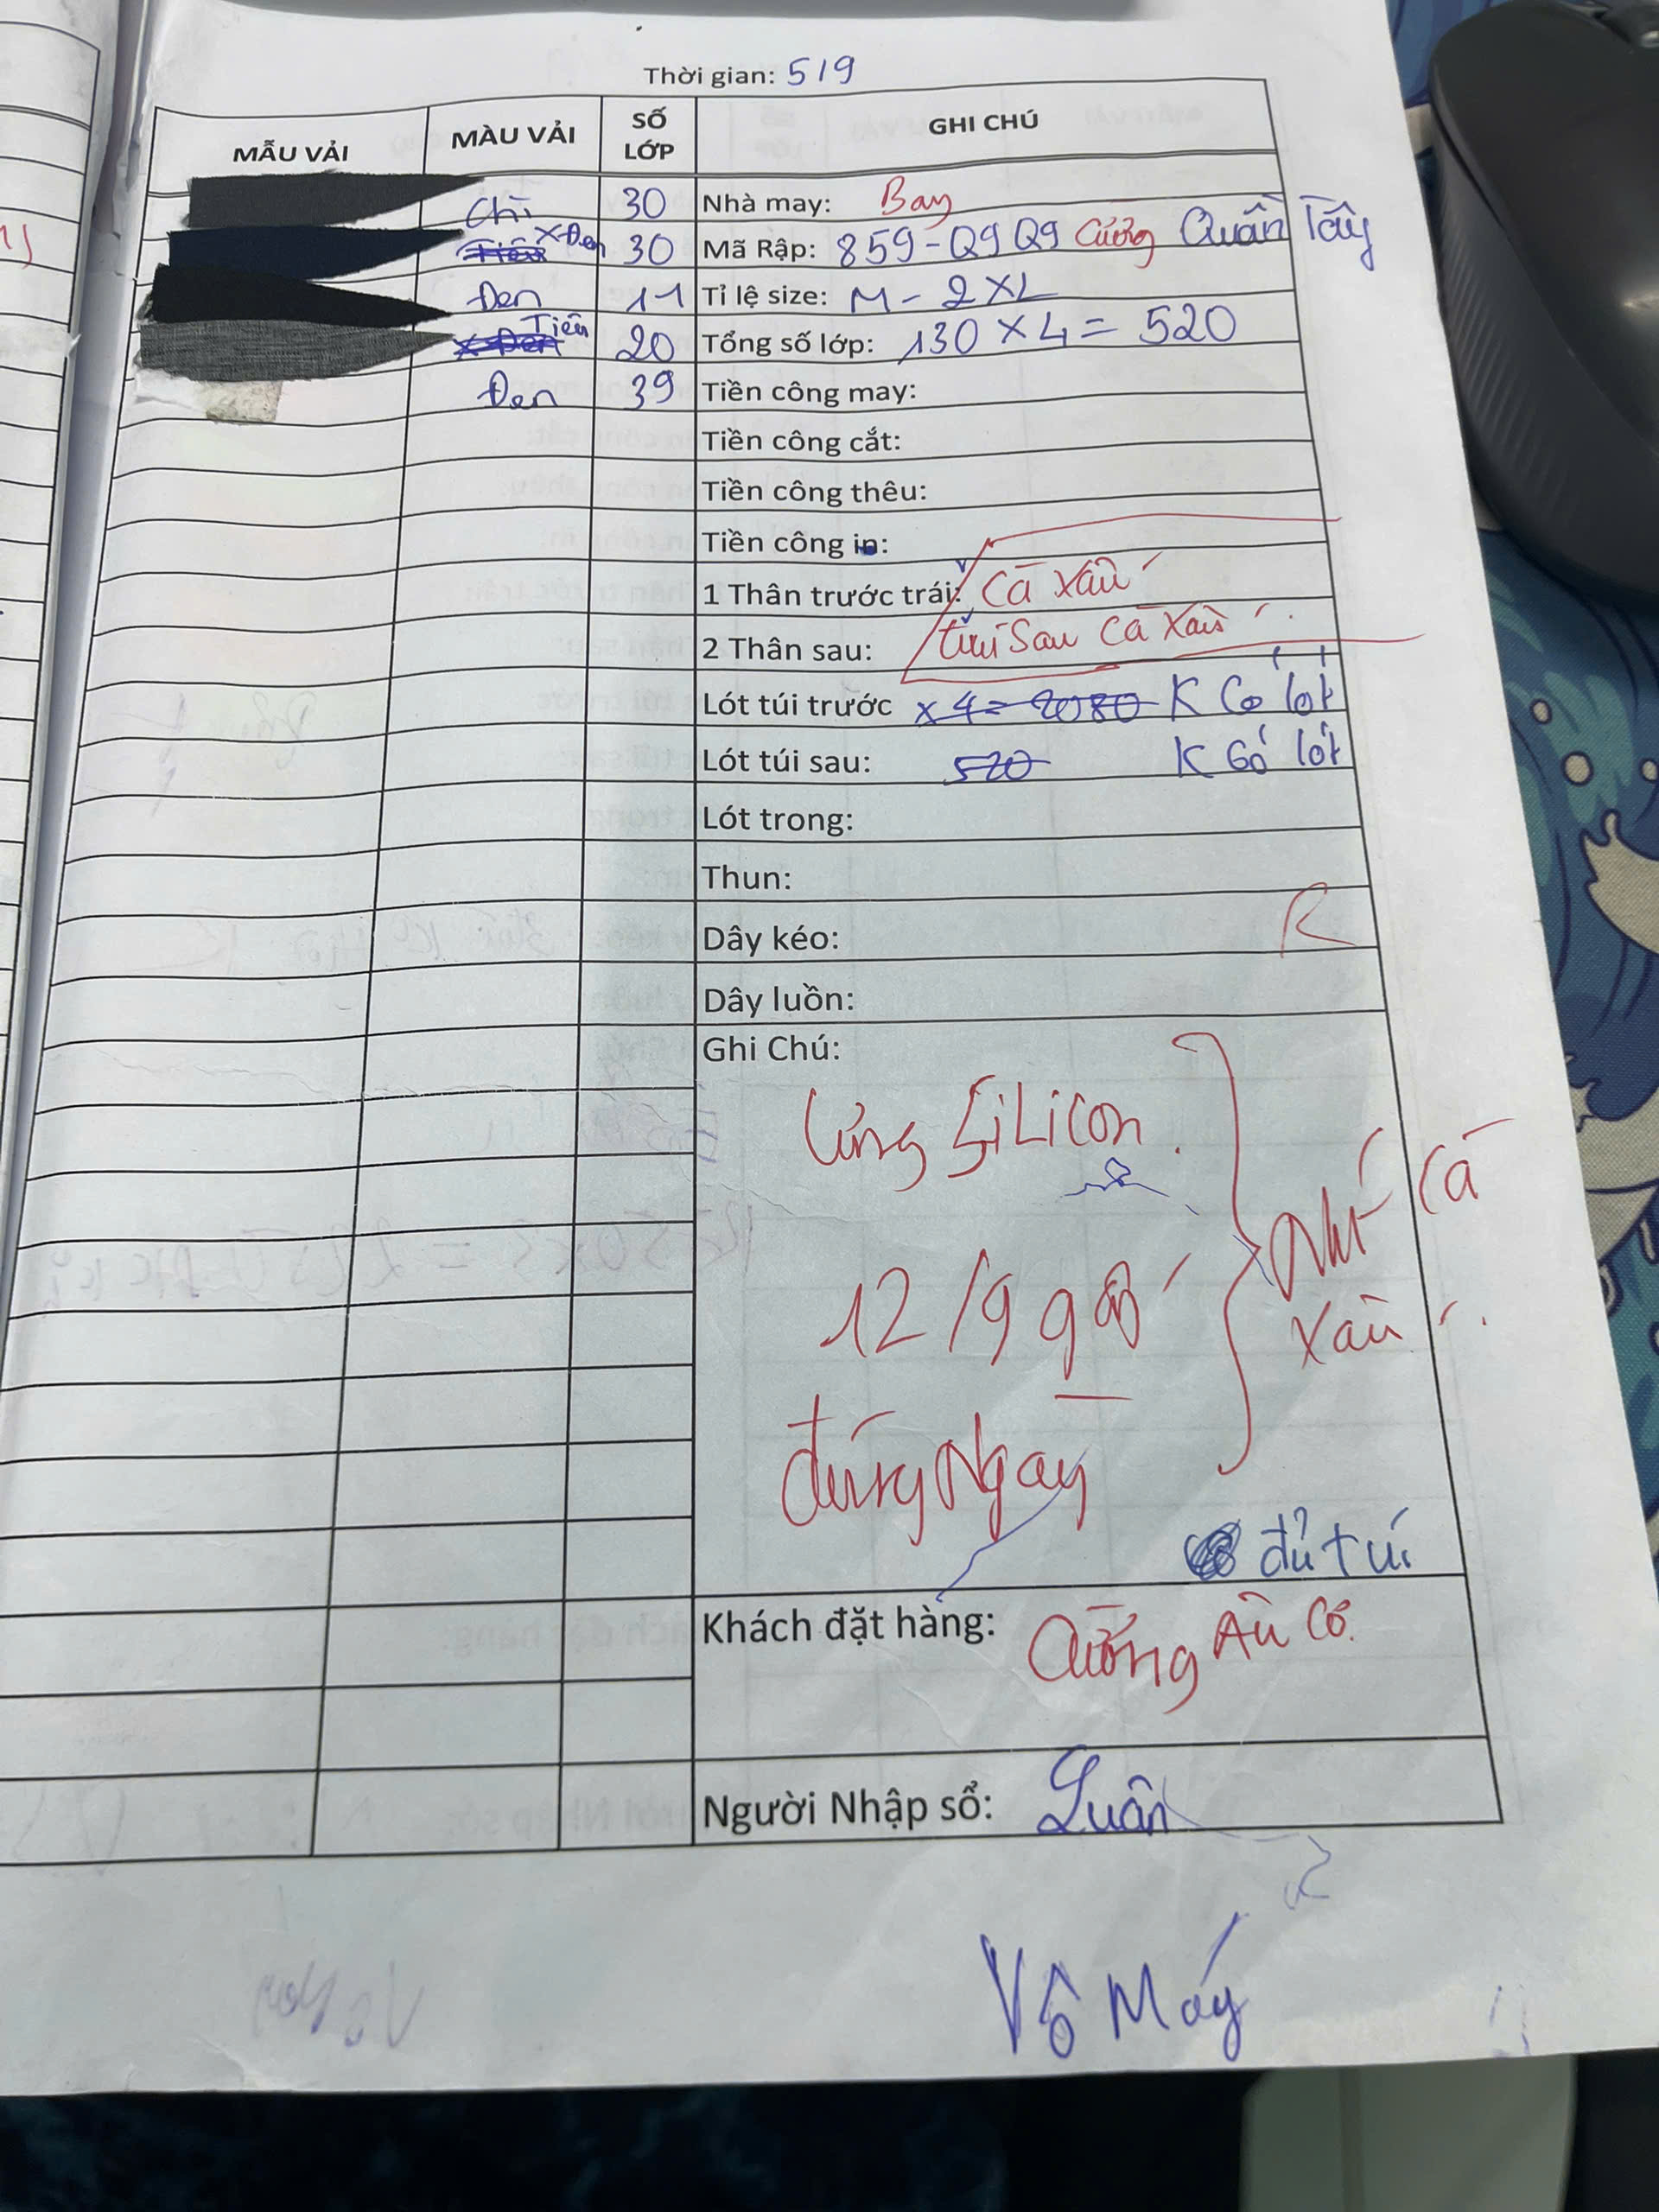 Thời gian: 5/9
MẪU VẢI MÀU VẢI SỐ LỚP GHI CHÚ
Chì 30 Nhà may: Bay
X Đen 30 Mã Rập: 859-Q9Q9 Cường Quần Tây
Đen 11 Tỉ lệ size: M - 2XL
Tiêu 20 Tổng số lớp: 130 x 4 = 520
Đen 39 Tiền công may:
Tiền công cắt:
Tiền công thêu:
Tiền công in:
1 Thân trước trái: Cá xấu
2 Thân sau: túi sau cá xấu
Lót túi trước x 4 = 2080 K Có lót
Lót túi sau: 520 K Có lót
Lót trong:
Thun:
Dây kéo: R
Dây luồn:
Ghi Chú:
Lưng Silicon.
12/9 gấp
đúng Ngay
Nhớ Cá
Xấu
đủ túi
Khách đặt hàng: Cường Âu Cơ.
Người Nhập sổ: Luân
Vô Máy